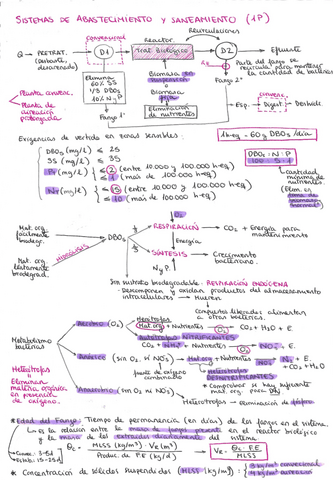 SISTEMAS DE ABASTECIMIENTO Y SANEAMIENTO (1P)
Recirculaciones
Convencional
Reactor
Q → PRETRAT. → D1 → Trat. Biológico → D2 → Efluente
(Desbaste, desarenado)
Parte del fango se recircula para mantener la cantidad de bacterias
Elimina:
60% SS
1/3 DBO5
10% N y P
Fango 1º
Biomasa en suspensión
o
Biomasa fija
Eliminación de nutrientes
Fango 2º
Planta conven.
Planta de aireación prolongada
convenc.
Esp. → Digest → Deshid.
Exigencias de vertido en zonas sensibles:
1 h-eq = 60 g DBO5/día
DBO5 (mg/L) ≤ 25
SS (mg/L) ≤ 35
P (mg/L) ≤ 2 (entre 10.000 y 100.000 h-eq)
≤ 1 (más de 100.000 h-eq)
N (mg/L) ≤ 15 (entre 10.000 y 100.000 h-eq)
≤ 10 (más de 100.000 h-eq)
DBO5 : N : P
100 : 5 : 1
Cantidad mínima de nutrientes
O2
Mat. org. fácilmente biodegr.
RESPIRACIÓN → CO2 + Energía para mantenimiento
HIDRÓLISIS
DBO5
Energía
Mat. org. lentamente biodegrad.
SÍNTESIS → Crecimiento bacteriano
N y P
Sin sustrato biodegradable: RESPIRACIÓN ENDÓGENA
descomponen y oxidan productos del almacenamiento intracelulares → Mueren
compuestos liberados alimentan a otras bacterias.
Metabolismo bacterias
Aerobio (O2)
Heterótrofas
Mat. org + Nutrientes → CO2 + H2O + E.
Autótrofas NITRIFICANTES
CO2 + NH4+ + Nutrientes → NO3- + E.
Anóxico (sin O2, ni NO3-) → Mat. org + Nutrientes → N2 + E.
+ CO2 + H2O
fuente de oxígeno combinado
Heterótrofas DESNITRIFICANTES
* Comprobar si hay suficiente mat. org. para DN
Heterótrofas
Eliminan materia orgánica en presencia de oxígeno.
Anaerobio (sin O2 ni NO3-)
Heterótrofas → eliminación de fósforo
* Edad del Fango: Tiempo de permanencia (en días) de los fangos en el sistema.
Es la relación entre la masa de fangos presente en el reactor biológico y la masa de los extraídos diariamente del sistema.
θc = MLSS (kg/m³) · Ve (m³)
Produc. de F.E (kg/d)
Ve = θc · F.E
MLSS
* Concentración de sólidos suspendidos (MLSS (kg/m³)):
3 kg/m³ convencional